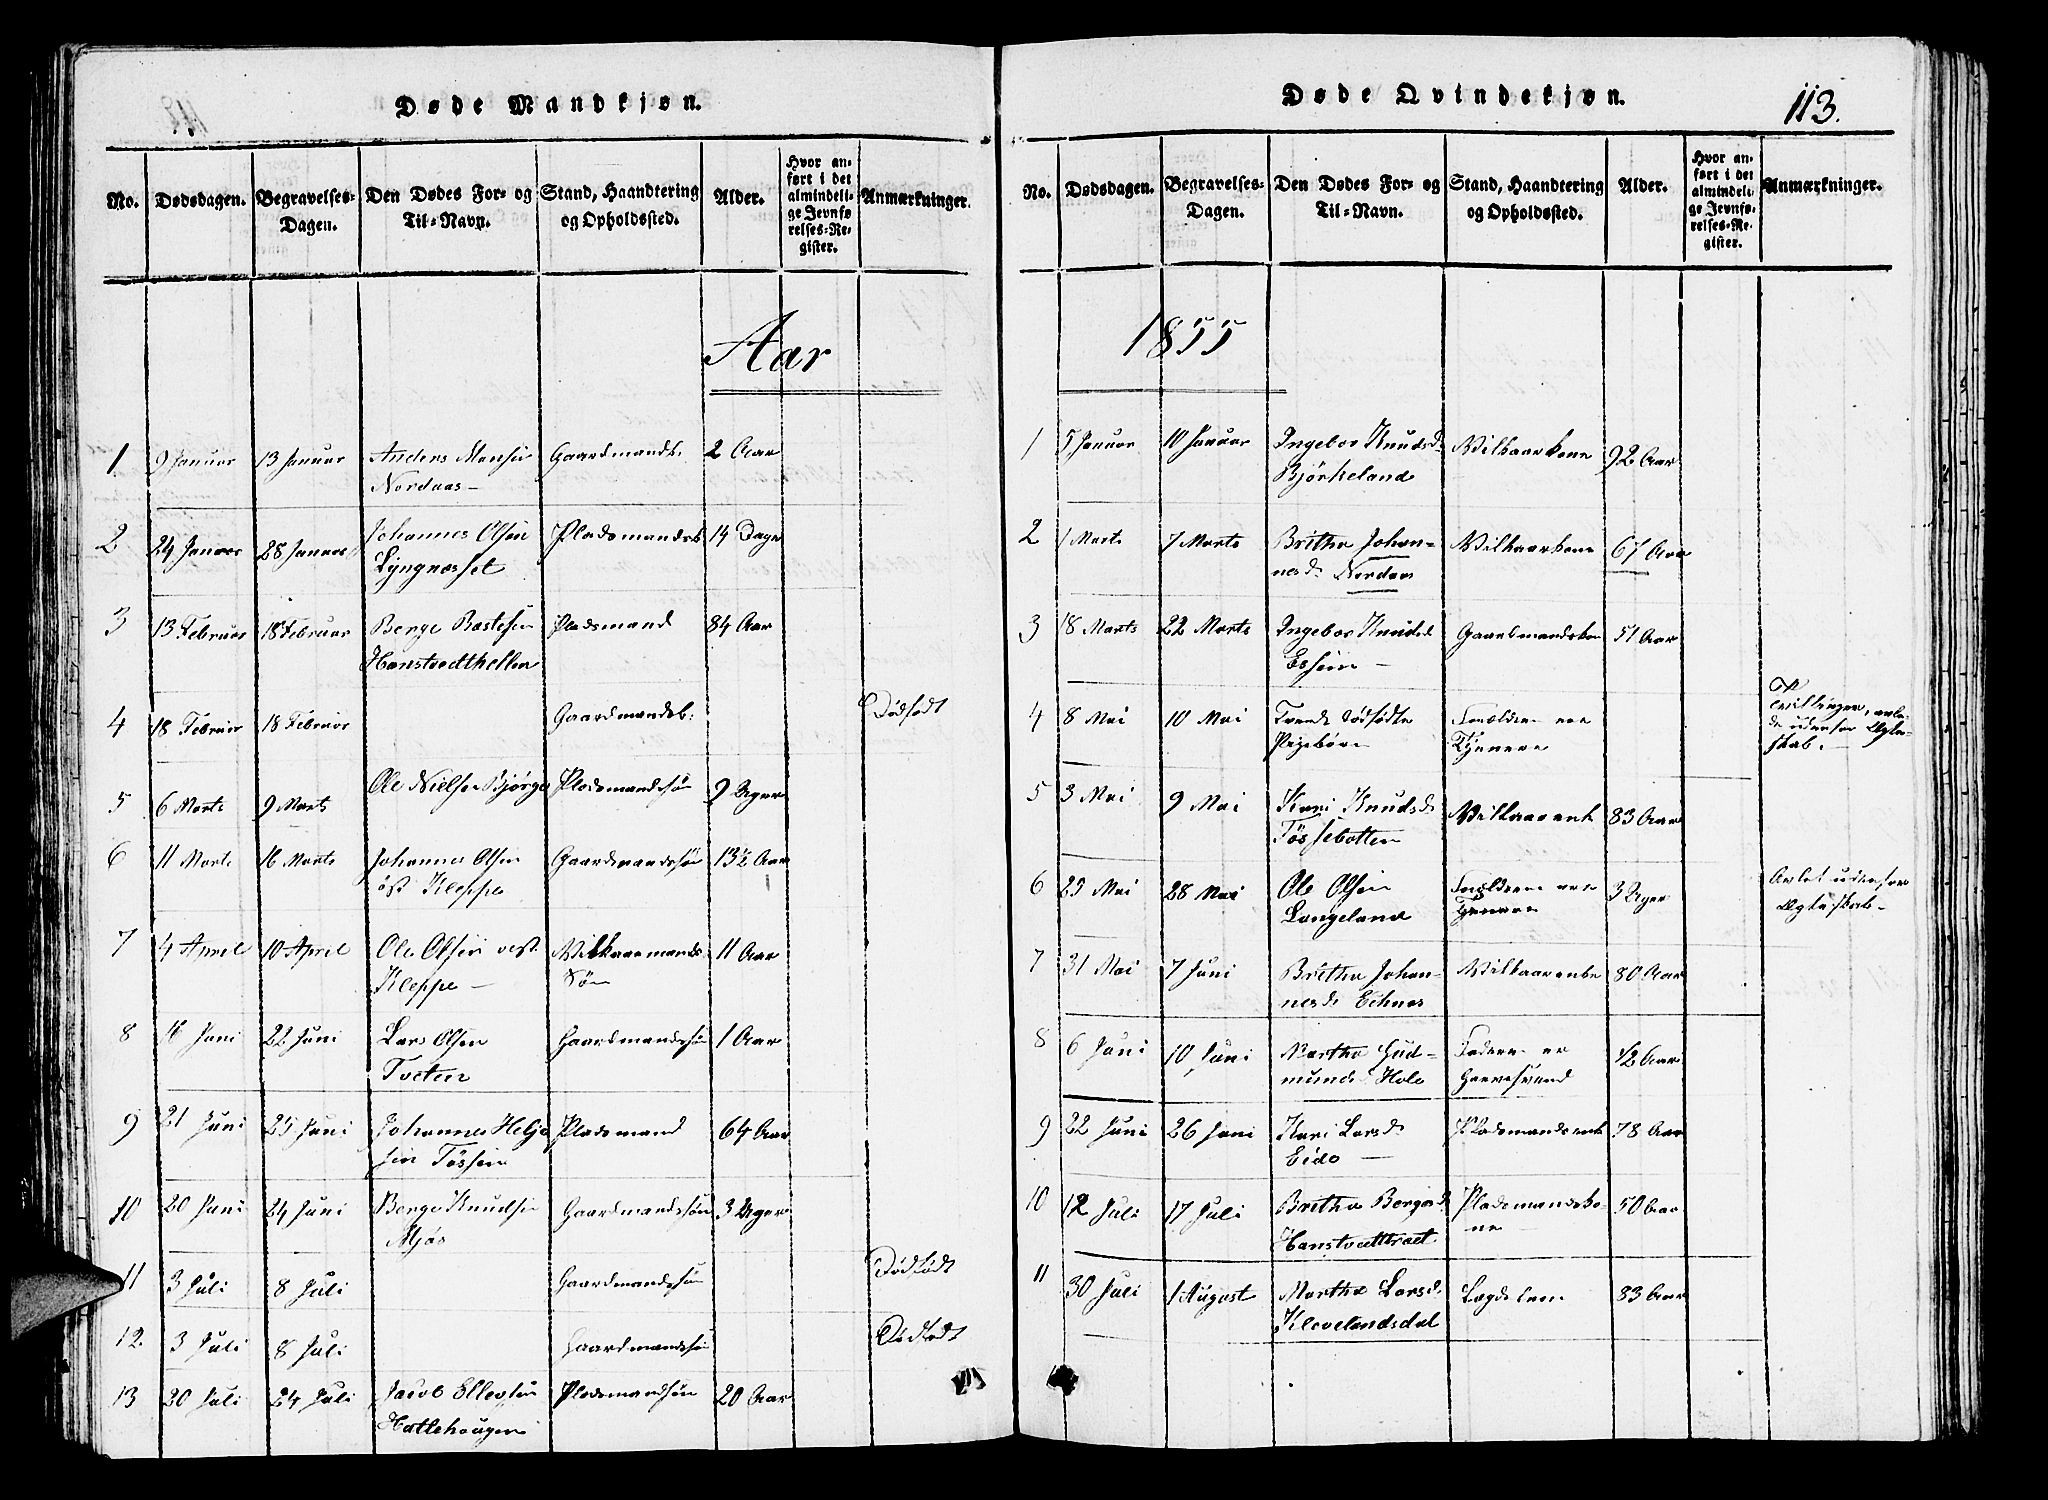 Døde Mandkjøn.
No. Dødsdagen. Begravelses-Dagen. Den Dødes For- og Til-Navn. Stand, Haandtering og Opholdssted. Alder. Hvor anført i det almindelige Jevnførelses-Register. Anmærkninger.
Aar
1 9 Januar 13 Januar Anders Monsen Gaardmands. 2 Aar
Nordaas
2 24 Januar 28 Januar Johannes Olsen Pladsmandsb 14 Dage
Lyngnesset
3 13 Februar 18 Februar Berge Bastesen Pladsmand 84 Aar
Hanstvedthellen
4 18 Februar 18 Februar Gaardmandsb: Dødfødt
5 6 Marts 9 Marts Ole Nielsen Bjørge Pladsmandssön 9 Uger
6 11 Marts 16 Marts Johannes Olsen Gaardmandssön 13½ Aar
öst Kleppe
7 4 April 10 April Ole Olsen vest Vilkaarmands 11 Aar
Kleppe – Søn
8 16 Juni 22 Juni Lars Olsen Gaardmandssön 1 Aar
Tveten
9 21 Juni 25 Juni Johannes Helje Pladsmand 64 Aar
sen Tössen
10 20 Juni 24 Juni Berge Knudsen Gaardmandssön 3 Uger
Mjøs
11 3 Juli 8 Juli Gaardmandssön Dödfödt
12. 3 Juli 8 Juli Gaardmandssön Dödfödt
13 20 Juli 24 Juli Jacob Ellevsen Pladsmandsøn 20 Aar
Hatlehaugen
Døde Qvindekjøn.
113.
No. Dødsdagen. Begravelses-Dagen. Den Dødes For- og Til-Navn. Stand, Haandtering og Opholdssted. Alder. Hvor anført i det almindelige Jevnførelses-Register. Anmærkninger.
1855
1 5 Januar 10 Januar Ingebor Knudsd. Vilkaarkone 92 Aar
Björkeland
2 1 Marts 7 Marts Britha Johan- Vilkaarkone 67 Aar
nesd. Nordaas
3 18 Marts 22 Marts Ingebor Knudsd Gaardmandskon 51 Aar
4 8 Mai 10 Mai Tvende Dødfødte Forældrene ere Tvillinger, avle-
Pigebørn Tjenere de udenfor Ægte-
skab.
5 3 Mai 9 Mai Kari Knudsd. Vilkaarenk 83 Aar
Tössebotten
6 25 Mai 28 Mai Ole Olsen Forældrene ere 3 Uger Avlet udenfor
Langeland Tjenere Ægteskab
7 31 Mai 7 Juni Britha Johan- Vilkaarenke 80 Aar
nesd. Echnes
8 6 Juni 10 Juni Martha Gud- Faderen er ½ Aar
mundsd. Holo Garvesvend
9 22 Juni 26 Juni Kari Larsd. Pladsmandsenk 78 Aar
Eide
10 12 Juli 17 Juli Britha Bergesd Pladsmandsko- 50 Aar
Hanstvedttræet ne
11 30 Juli 1 August Martha Larsd. Lægdslem 83 Aar
Klevelandsdal